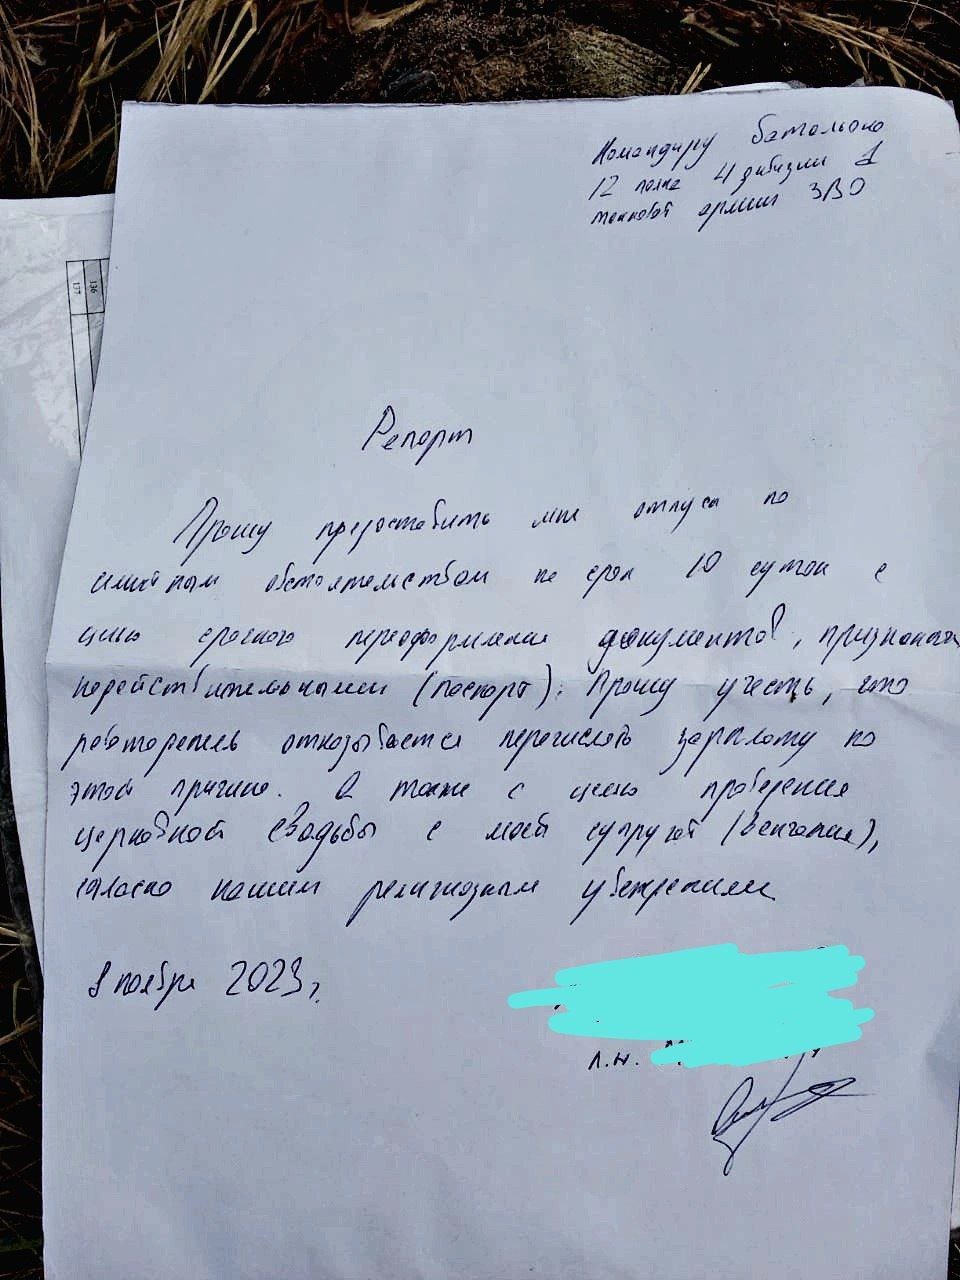 Командиру батальона
12 полка 4 дивизии 1
танковой армии ЗВО
Рапорт
Прошу предоставить мне отпуск по
семейным обстоятельствам на срок 10 суток с
целью срочного переоформления документов, признанных
недействительными (паспорт). Прошу учесть, что
работодатель отказывается перечислять зарплату по
этой причине. А также с целью проведения
церковной свадьбы с моей супругой (венчания),
согласно нашим религиозным убеждениям
8 ноября 2023 г.
л.н.
136
137